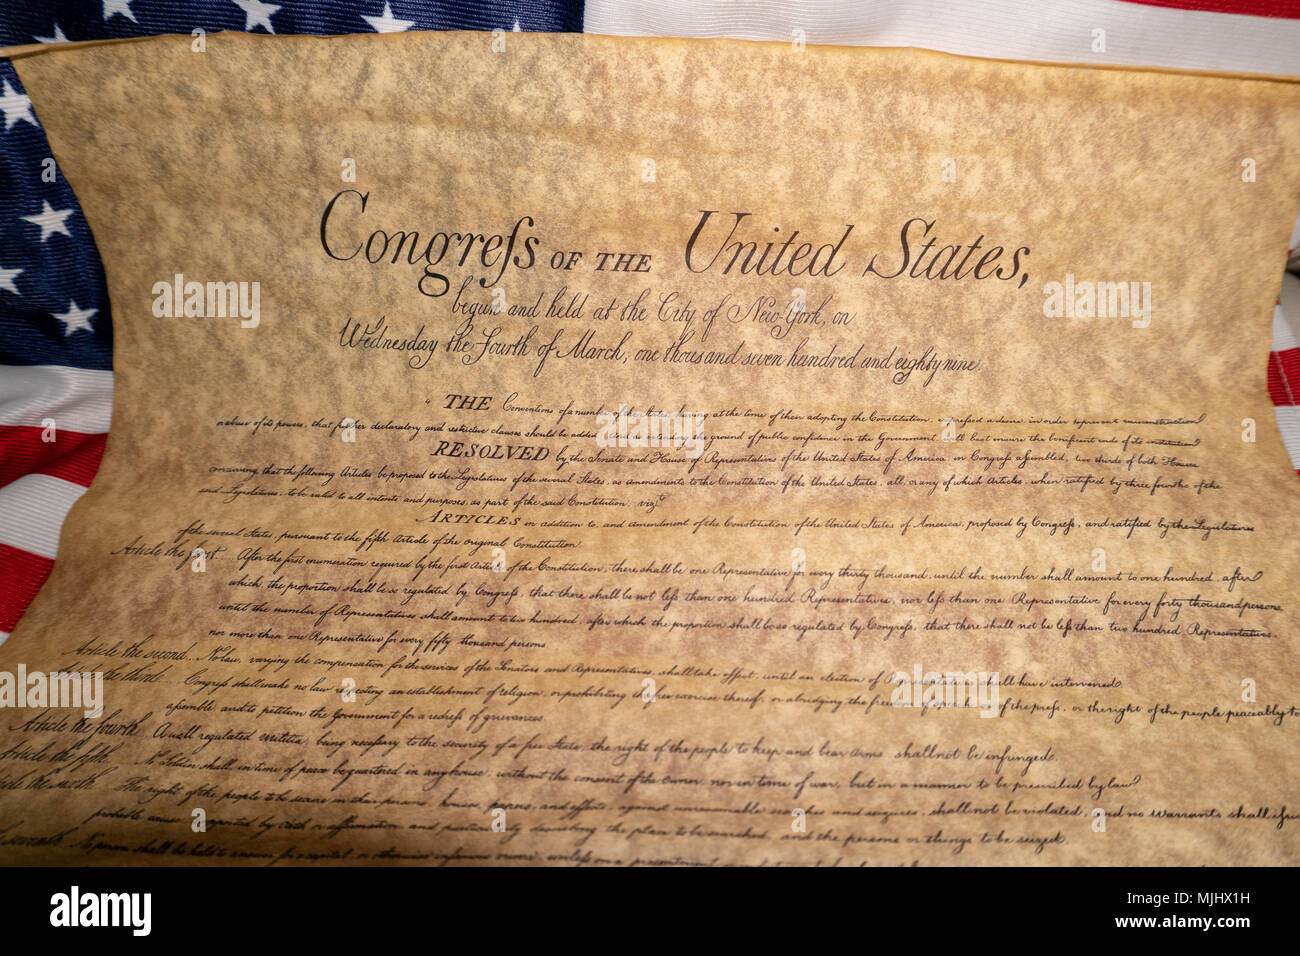 Congreſs OF THE United States,
begun and held at the City of New-York, on
Wednesday the Fourth of March, one thousand seven hundred and eighty nine
THE Conventions of a number of the States, having at the time of their adopting the Constitution, expreſsed a desire, in order to prevent misconstruction
or abuse of its powers, that further declaratory and restrictive clauses should be added: And as extending the ground of public confidence in the Government, will best ensure the beneficent ends of its institution
RESOLVED by the Senate and House of Representatives of the United States of America, in Congreſs aſsembled, two thirds of both Houses
concurring that the following Articles be proposed to the Legislatures of the several States, as amendments to the Constitution of the United States, all, or any of which Articles, when ratified by three fourths of the
said Legislatures, to be valid to all intents and purposes, as part of the said Constitution. viz.t
ARTICLES in addition to, and amendment of the Constitution of the United States of America, proposed by Congreſs, and ratified by the Legislatures
of the several States, pursuant to the fifth Article of the original Constitution.
Article the first.... After the first enumeration required by the first Article of the Constitution, there shall be one Representative for every thirty thousand, until the number shall amount to one hundred, after
which, the proportion shall be so regulated by Congreſs, that there shall be not leſs than one hundred Representatives, nor leſs than one Representative for every forty thousand persons,
until the number of Representatives shall amount to two hundred, after which the proportion shall be so regulated by Congreſs, that there shall not be leſs than two hundred Representatives,
nor more than one Representative for every fifty thousand persons.
Article the second... No law, varying the compensation for the services of the Senators and Representatives, shall take effect, until an election of Representatives shall have intervened.
Article the third.... Congreſs shall make no law respecting an establishment of religion, or prohibiting the free exercise thereof; or abridging the freedom of speech, or of the preſs, or the right of the people peaceably to
aſsemble, and to petition the Government for a redreſs of grievances.
Article the fourth. A well regulated militia, being neceſsary to the security of a free State, the right of the people to keep and bear arms, shall not be infringed.
Article the fifth. No Soldier shall, in time of peace be quartered in any house, without the consent of the owner, nor in time of war, but in a manner to be prescribed by law.
the sixth. The right of the people to be secure in their persons, houses, papers, and effects, against unreasonable searches and seizures, shall not be violated, and no warrants shall
probable cause, supported by oath or affirmation, and particularly describing the place to be searched, and the persons or things to be seized.
seventh No person shall be held to answer for a capital, or otherwise infamous crime, unleſs on a presentment
alamy
alamy
Image ID: MJHX1H
www.alamy.com